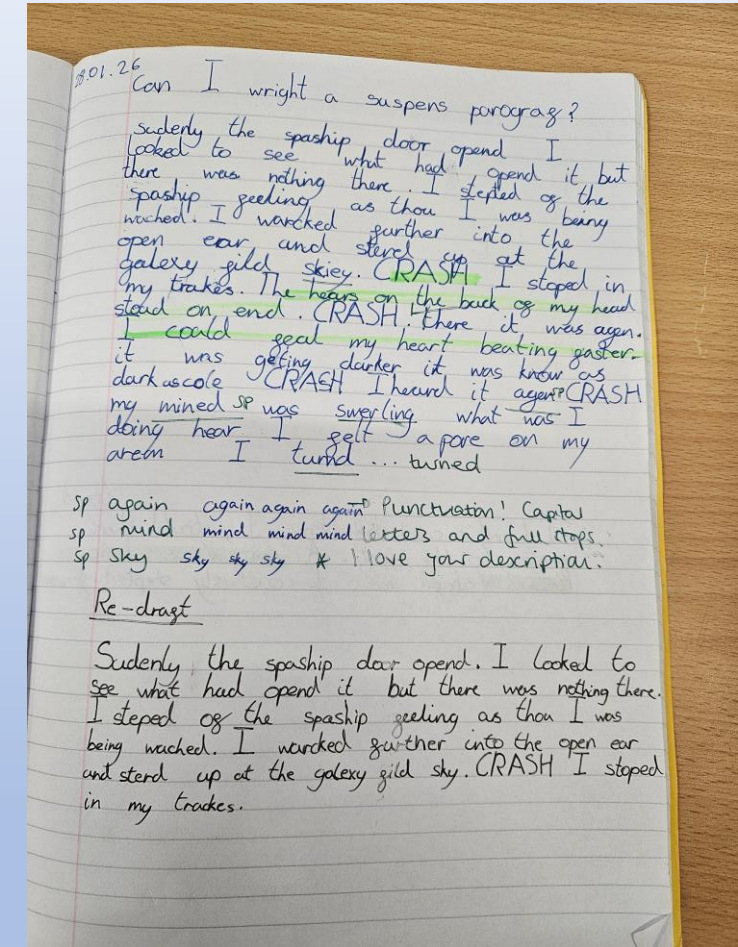 28.01.26
Can I wright a suspens paragraf?
sudenly the spaship door opend I
looked to see what had opend it but
there was nothing there. I steped of the
spaship feeling as thou I was being
wached. I warcked further into the
open ear and sterd up at the
galexy fild skiey. CRASH I stoped in
my trakes. The hears on the back of my head
stead on end. CRASH. there it was agen.
I could feal my heart beating faster.
it was geting darker it was know as
dark as cole CRASH I heard it agen sp CRASH
my mined sp was swerling what was I
doing hear I felt a pore on my
arem I turnd ... turned
sp again again again again Punctuation! Capital
sp mind mind mind mind letters and full stops.
sp sky sky sky sky * I love your description.
Re-draft
Sudenly the spaship door opend. I looked to
see what had opend it but there was nothing there.
I steped of the spaship feeling as thou I was
being wached. I warcked further into the open ear
and sterd up at the galexy fild sky. CRASH I stoped
in my trackes.